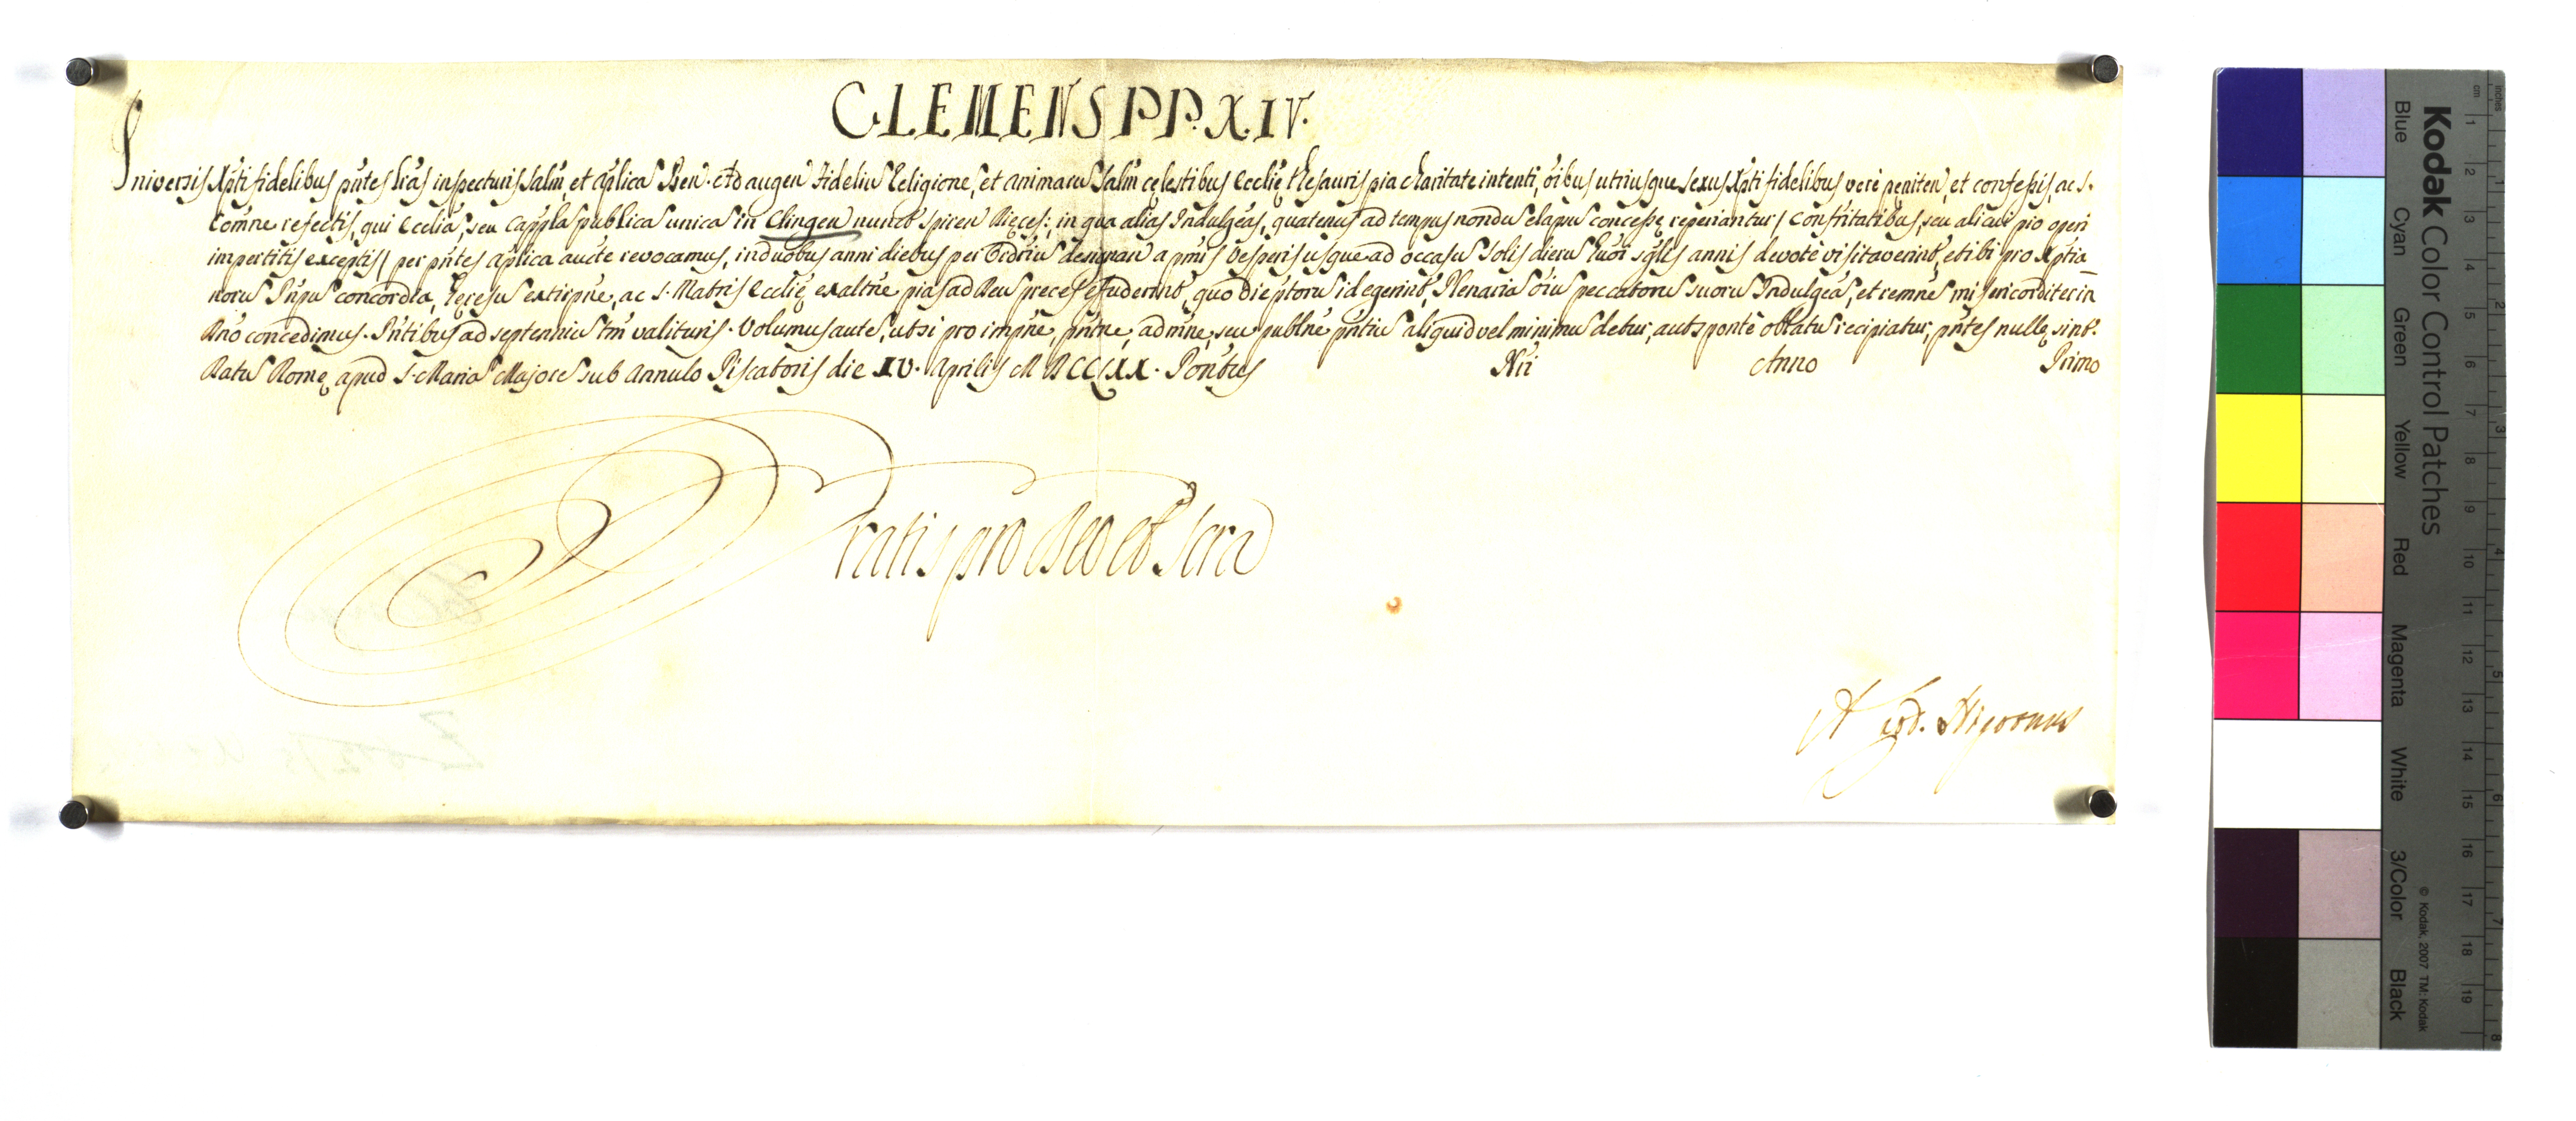 CLEMENS PP. XIV.
Universis Xpti fidelibus pñtes lras inspecturis salm̃, et aplica͂ Ben. Ad augen fideliu͂ Religione͂, et animaru͂ salm̃ cęlestibus Ecclię thesauris pia charitate intenti, oĩbus utriusque sexus Xpti fidelibus verè peniten et confessis, ac s.
comne refectis, qui Ecclia͂, seu cappla͂ publica͂ unica͂ in Clingen nuncꝰ spiren Dięces: in qua alias Indulgẽas, quatenus ad tempus nondu͂ elapsu͂ concessę reperiantur / confritatibus, seu alicui pio operi
impertitis exceptis / per pñtes aplica aucte revocamus, in duobus anni diebus per Ordriu͂ designan a pmis Vesperis usque ad occasu͂ Solis dieru͂ huõi sglis annis devotè visitaverint, et ibi pro Xptia
noru͂ Pñpu͂ concordia, hęresu͂ extirpñe, ac S. Matris Ecclię exaltñe pias ad Deu͂ preces effuderint, quo die ptoru͂ id egerint, Plenaria͂ oĩu͂ peccatoru͂ suoru͂ Indulgẽa͂, et remñe͂ misericorditer in
Dño concedimus. Pñtibus ad septenniu͂ tm̃ valituris. Volumus aute͂, ut si pro impñe, pñtne, admñe, seu publñe pñtiu͂ aliquid vel minimu͂ detur, aut sponte oblatu͂ recipiatur, pñtes nullę sint.
Datu͂ Romę apud S. Maria͂ Majore͂ sub Annulo Piscatoris die XV. Aprilis MDCCLXX. Pontus Nri Anno Primo
Gratis pro Deo et Scra